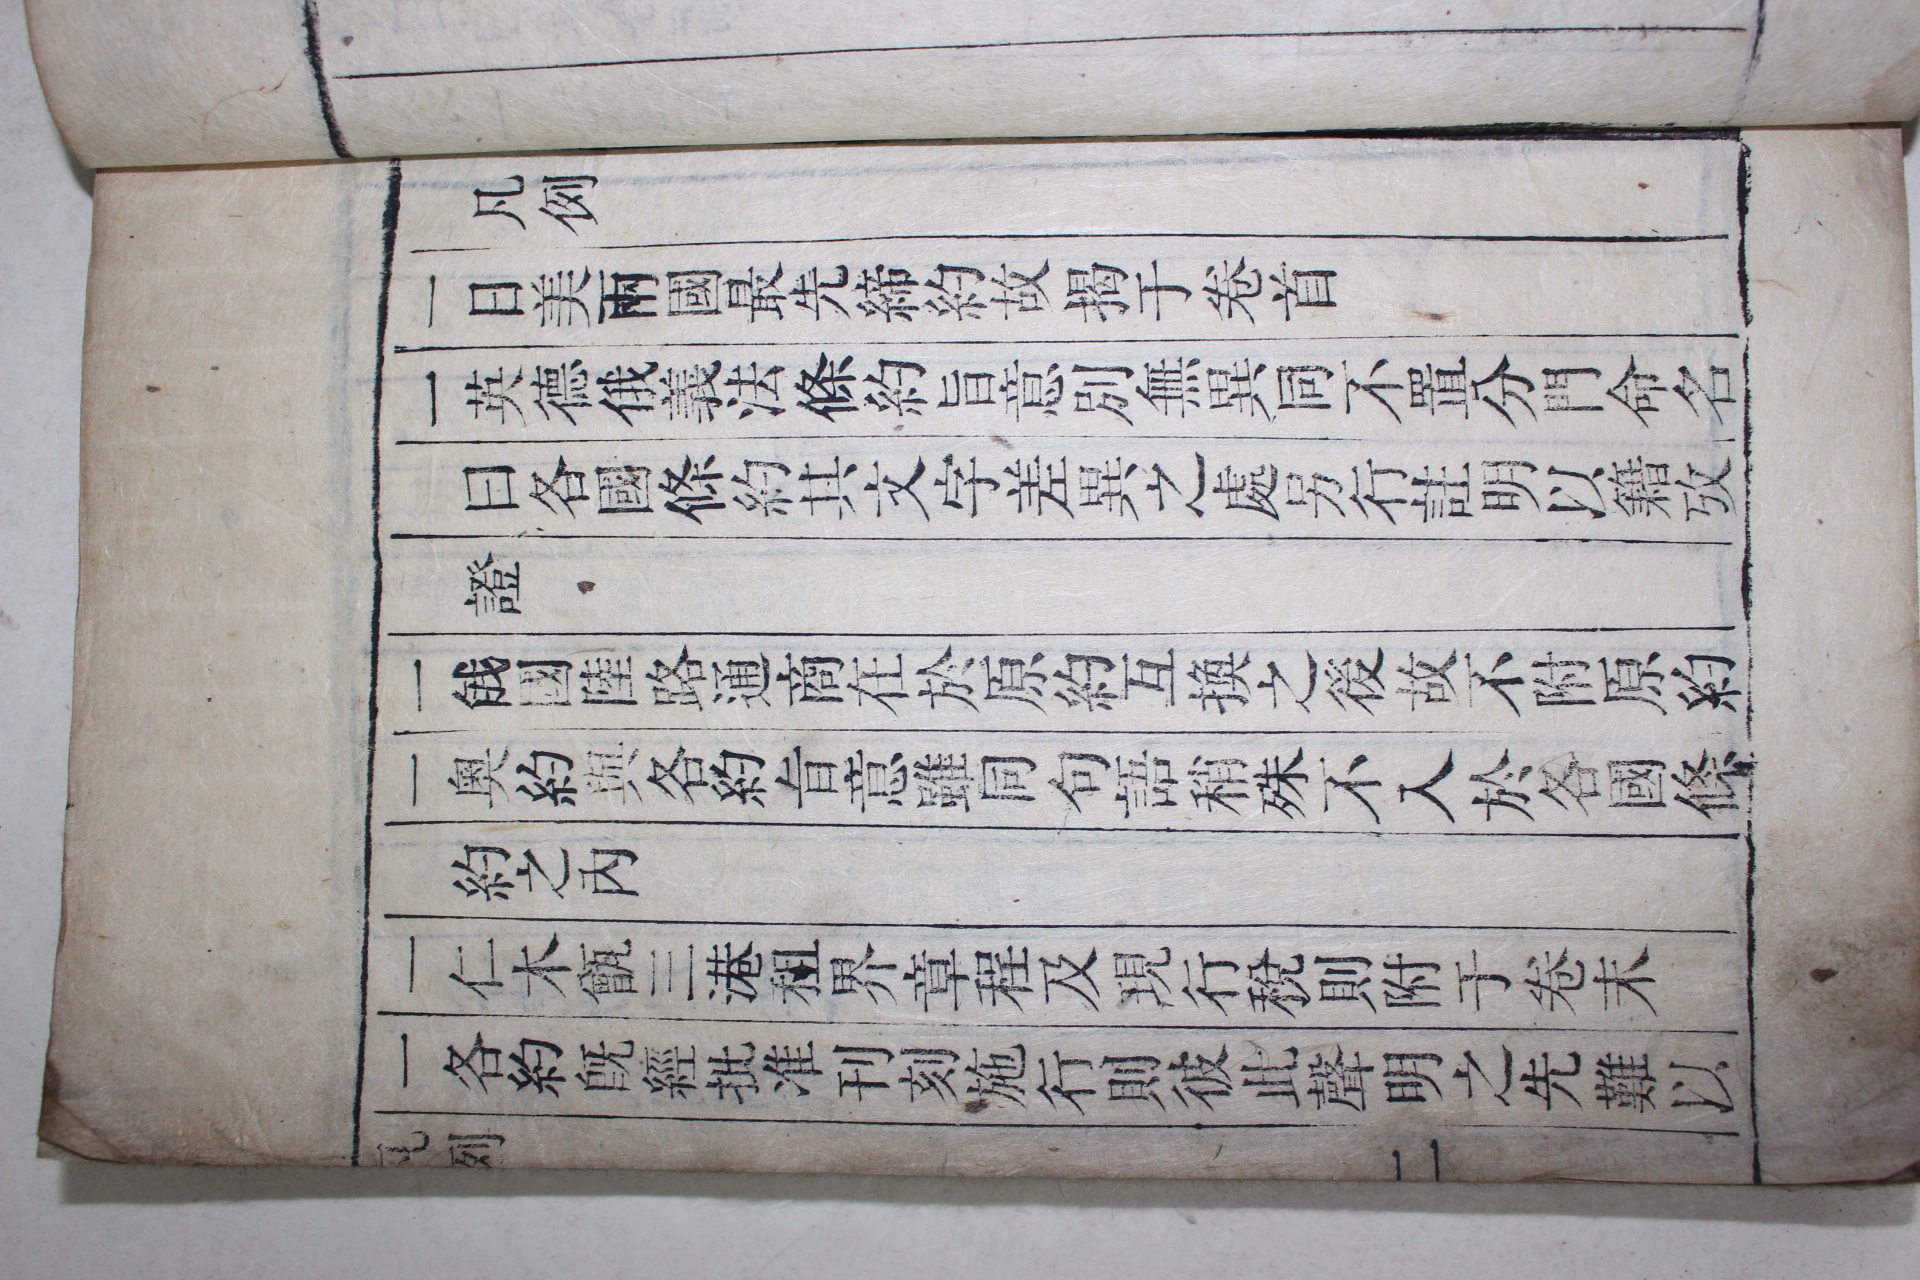 凡例
一日美兩國最先締約故揭于卷首
一英德俄義法條約旨意別無異同不置分門命名
曰各國條約其文字差異之處另行註明以籍攷
證
一俄國陸路通商在於原約互換之後故不附原約
一奧約與各約旨意雖同句語稍殊不入於各國條
約之內
一仁木甑三港租界章程及現行稅則附于卷末
一各約旣經批准刊刻施行則彼此聲明之先難以
凡例 二